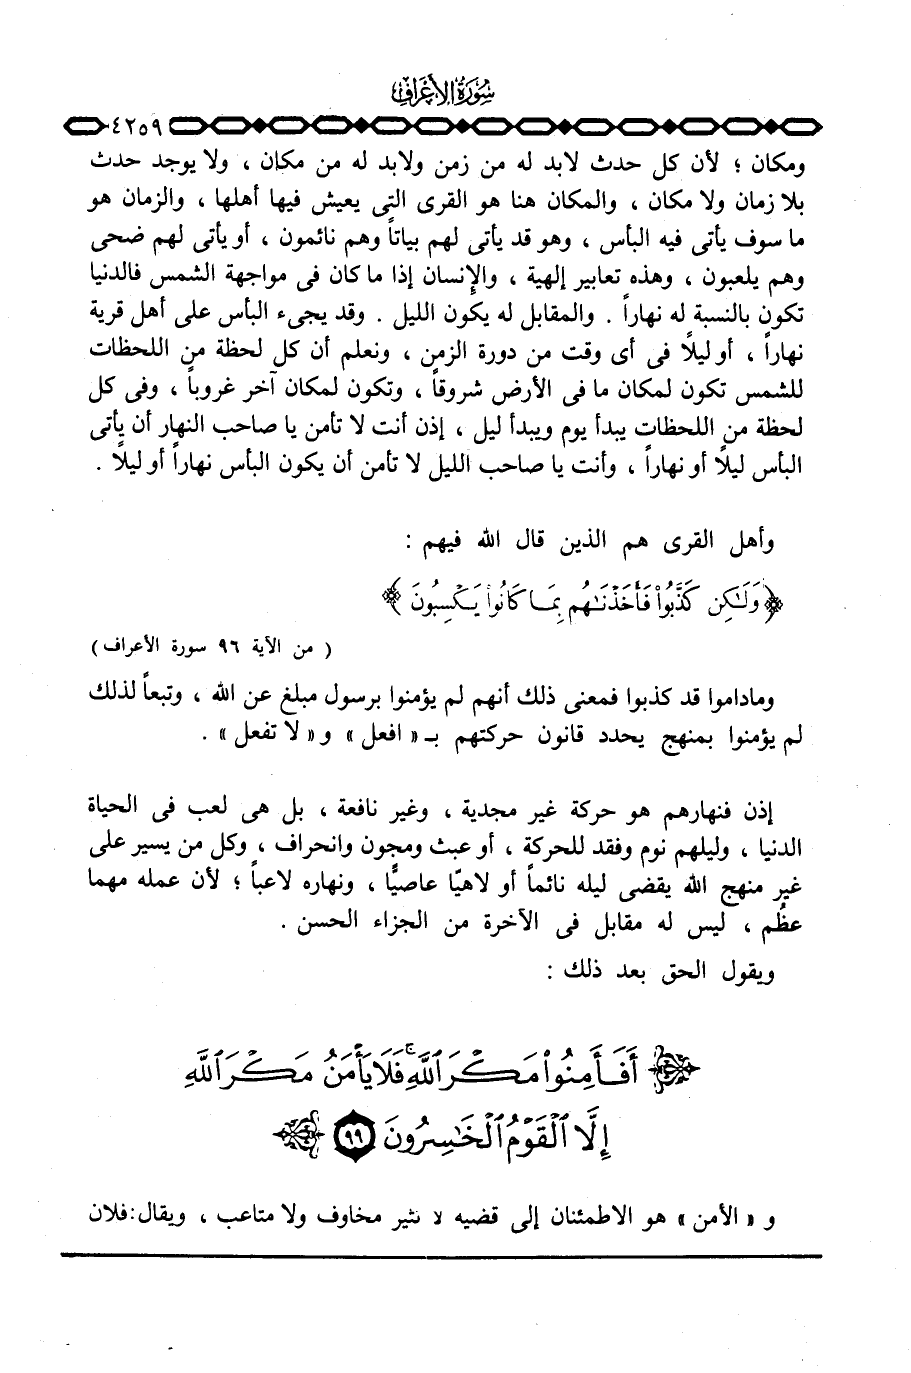 سورة الأعراف
٤٢٥٩
ومكان ؛ لأن كل حدث لابد له من زمن ولابد له من مكان ، ولا يوجد حدث
بلا زمان ولا مكان ، والمكان هنا هو القرى التى يعيش فيها أهلها ، والزمان هو
ما سوف يأتى فيه البأس ، وهو قد يأتى لهم بياتاً وهم نائمون ، أو يأتى لهم ضحى
وهم يلعبون ، وهذه تعابير إلهية ، والإنسان إذا ما كان فى مواجهة الشمس فالدنيا
تكون بالنسبة له نهاراً . والمقابل له يكون الليل . وقد يجىء البأس على أهل قرية
نهاراً ، أو ليلًا فى أى وقت من دورة الزمن ، ونعلم أن كل لحظة من اللحظات
للشمس تكون لمكان ما فى الأرض شروقاً ، وتكون لمكان آخر غروباً ، وفى كل
لحظة من اللحظات يبدأ يوم ويبدأ ليل ، إذن أنت لا تأمن يا صاحب النهار أن يأتى
البأس ليلًا أو نهاراً ، وأنت يا صاحب الليل لا تأمن أن يكون البأس نهاراً أو ليلًا .
وأهل القرى هم الذين قال الله فيهم :
﴿ وَلَٰكِن كَذَّبُوا۟ فَأَخَذْنَٰهُم بِمَا كَانُوا۟ يَكْسِبُونَ ﴾
( من الآية ٩٦ سورة الأعراف)
وماداموا قد كذبوا فمعنى ذلك أنهم لم يؤمنوا برسول مبلغ عن الله ، وتبعاً لذلك
لم يؤمنوا بمنهج يحدد قانون حركتهم بـ « افعل » و « لا تفعل » .
إذن فنهارهم هو حركة غير مجدية ، وغير نافعة ، بل هى لعب فى الحياة
الدنيا ، وليلهم نوم وفقد للحركة ، أو عبث ومجون وانحراف ، وكل من يسير على
غير منهج الله يقضى ليله نائماً أو لاهيًا عاصيًا ، ونهاره لاعباً ؛ لأن عمله مهما
عظُم ، ليس له مقابل فى الآخرة من الجزاء الحسن .
ويقول الحق بعد ذلك :
﴿ أَفَأَمِنُوا۟ مَكْرَ ٱللَّهِ ۚ فَلَا يَأْمَنُ مَكْرَ ٱللَّهِ
إِلَّا ٱلْقَوْمُ ٱلْخَٰسِرُونَ ٩٩ ﴾
و « الأمن » هو الاطمئنان إلى قضيه لا تثير مخاوف ولا متاعب ، ويقال: فلان